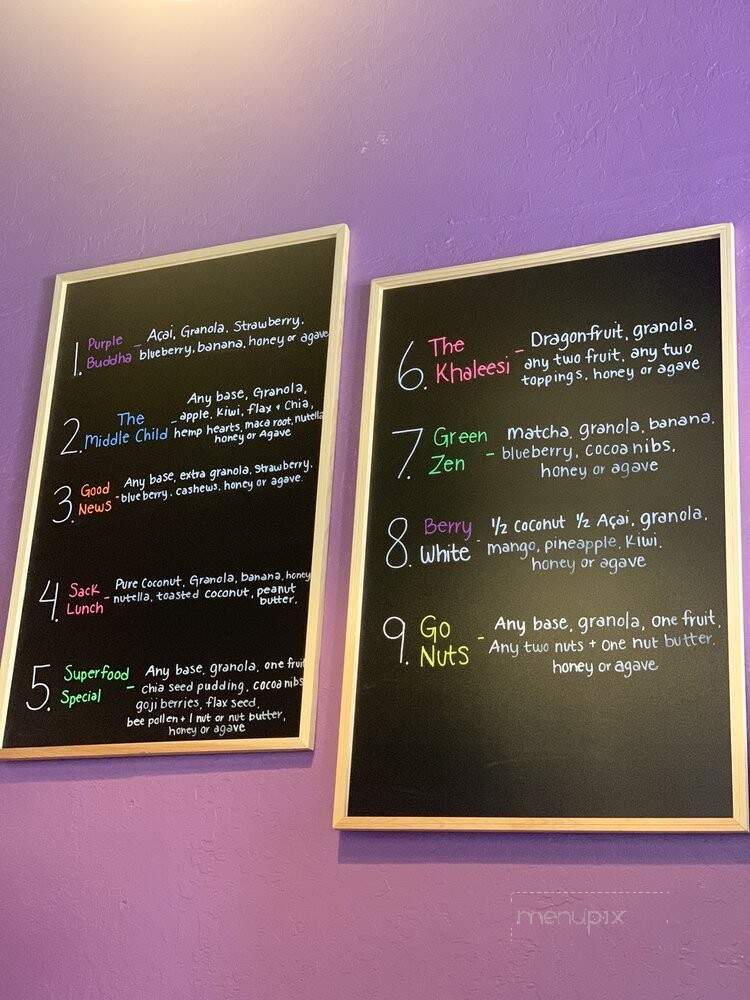 1. Purple Buddha - Açai, Granola, Strawberry,
blueberry, banana, honey or agave
2. The Middle Child - Any base, Granola,
apple, Kiwi, flax + Chia,
hemp hearts, maca root, nutella
honey or Agave
3. Good News - Any base, extra granola, strawberry,
blueberry, cashews, honey or agave.
4. Sack Lunch - Pure Coconut, Granola, banana, honey
nutella, toasted coconut, peanut
butter.
5. Superfood Special - Any base, granola, one fruit
chia seed pudding, cocoa nibs
goji berries, flax seed,
bee pollen + 1 nut or nut butter,
honey or agave
6. The Khaleesi - Dragonfruit, granola,
any two fruit, any two
toppings, honey or agave
7. Green Zen - Matcha, granola, banana,
blueberry, cocoa nibs,
honey or agave
8. Berry White - 1/2 coconut 1/2 Açai, granola,
mango, pineapple, Kiwi,
honey or agave
9. Go Nuts - Any base, granola, one fruit,
Any two nuts + one nut butter,
honey or agave
menupix